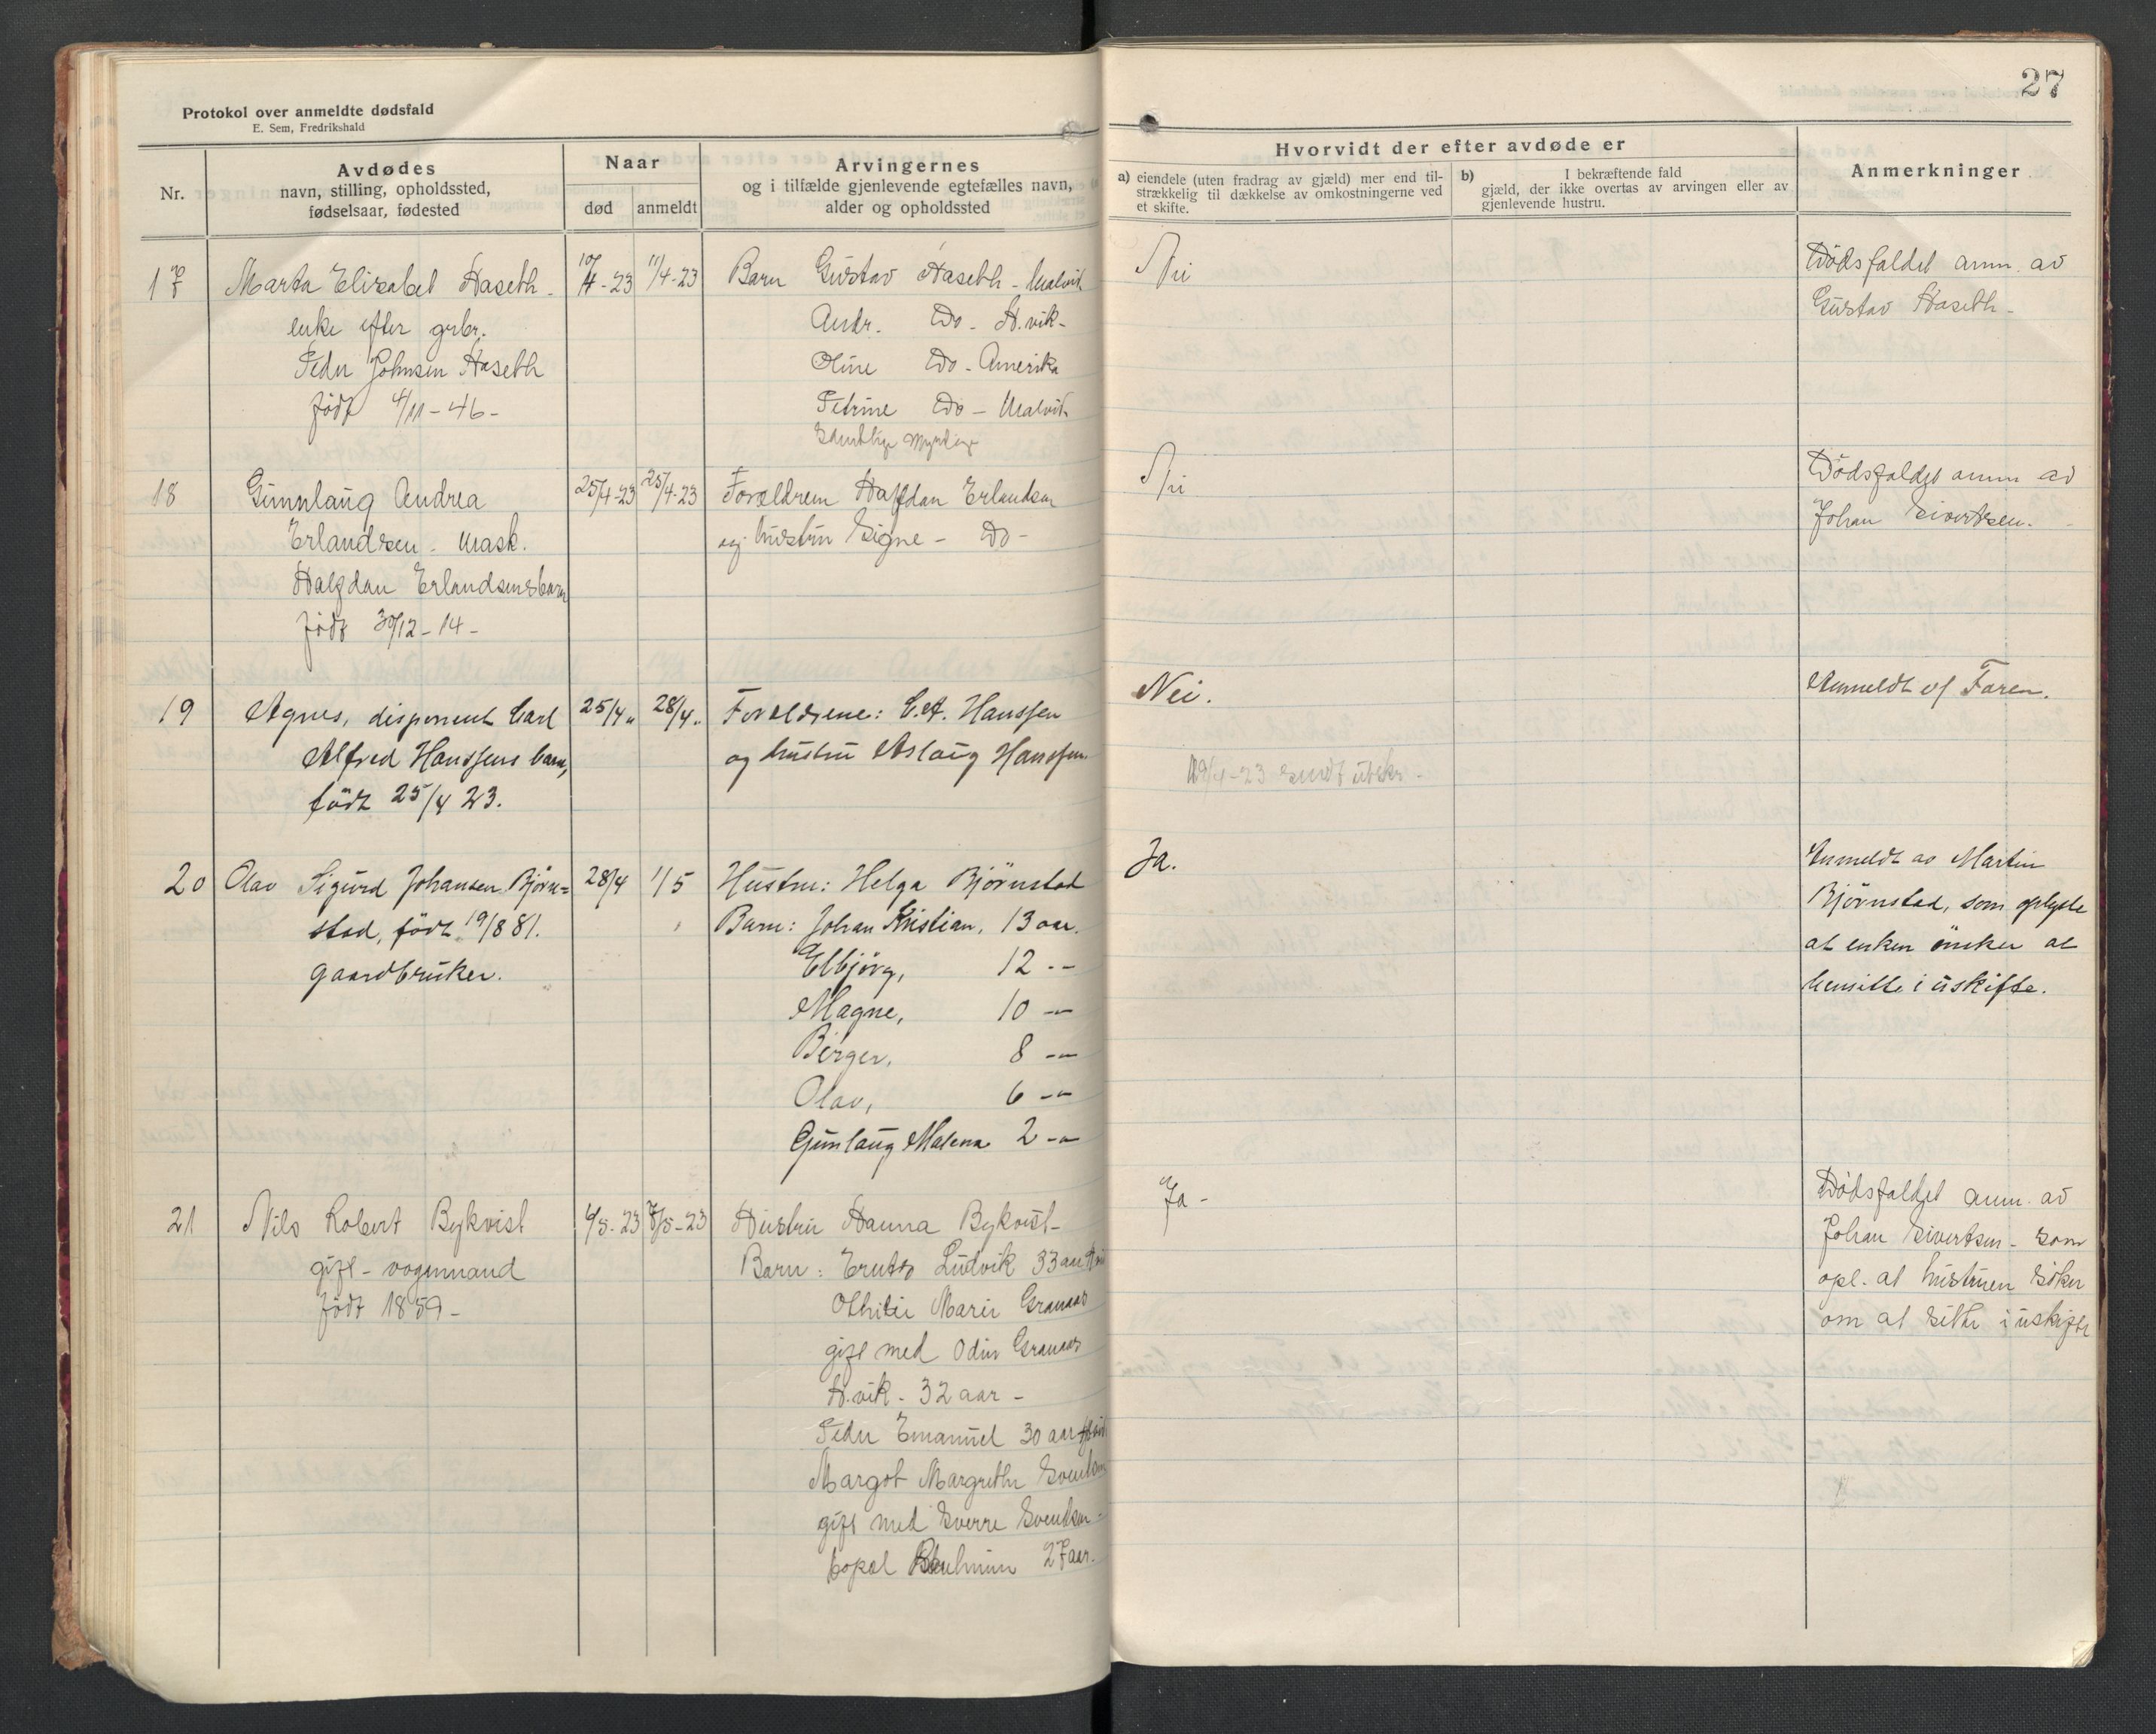 27
Protokol over anmeldte dødsfald
E. Sem, Fredrikshald
Nr.
Avdødes
navn, stilling, opholdssted,
fødselsaar, fødested
Naar
død
anmeldt
Arvingernes
og i tilfælde gjenlevende egtefælles navn,
alder og opholdssted
Hvorvidt der efter avdøde er
a) eiendele (uten fradrag av gjæld) mer end til-
strækkelig til dækkelse av omkostningerne ved
et skifte.
b) I bekræftende fald
gjæld, der ikke overtas av arvingen eller av
gjenlevende hustru.
Anmerkninger
17 Marta Elisabet Haseth - 10/4-23 11/4-23 Barn Gustav Haseth - Malvik Nei Dödsfaldet anm. av
enke efter grbr. Andr. Do - H.vik - Gustav Haseth -
Peder Johnsen Haseth Oline Do - Amerika
født 4/11-46- Petrine Do - Malvik
Samtlige myndige
18 Gunnlaug Andrea 25/4-23 25/4-23 Forældrene Halfdan Erlandsen Nei Dödsfaldet anm av
Erlandsen - Mask. og hustru Signe - Do - Johan Sivertsen.
Halfdan Erlandsens barn
født 30/12-14-
19 Agnes, disponent Carl 25/4 " 28/4 " Forældrene: C.A. Hanssen Nei. Anmeldt af Faren.
Alfred Hanssens barn, og hustru Aslaug Hanssen
født 25/4 23. 29/4-23 sendt utskr -
20 Olav Sigurd Johansen Björn= 28/4 1/5 Hustru: Helga Björnstad Ja. Anmeldt av Martin
stad, födt 19/8 81. Barn: Johan Kristian, 13 aar. Björnstad, som oplyste
gaardbruker. Elbjörg, 12 -- at enken önsker at
Magne, 10 -"- hensitte i uskifte.
Birger, 8 -"-
Olav, 6 -"-
Gunlaug Malena 2 -"-
21 Nils Robert Bykvist 4/5-23 7/5-23 Hustru Hanna Bykvist - Ja - Dödsfaldet anm. av
gift - vognmand Barn: Ludvik 33 aar Johan Sivertsen - som
født 1859 - Othilie Marie Granaas opl. at hustruen söker
gift med Odin Granaas om at sitte i uskifte
H.vik - 32 aar -
Peder Emanuel 30 aar
Margot Margrethe Svendsen
gift med Sverre Svendsen -
27 aar.